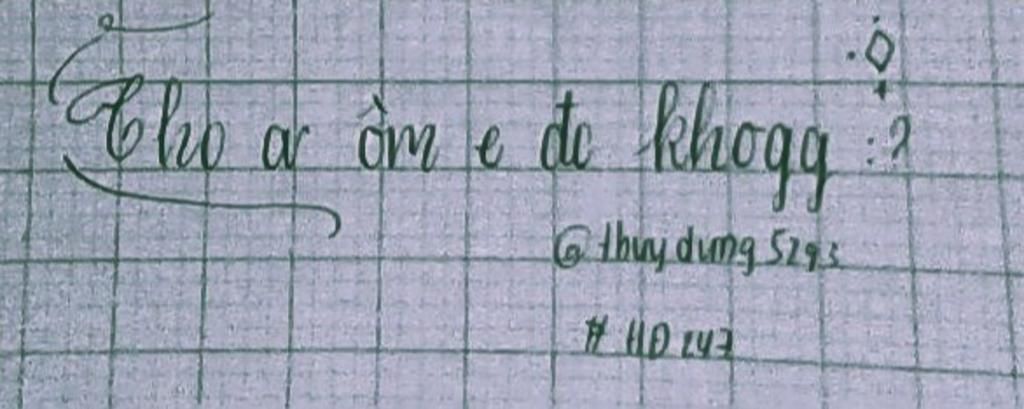 Cho a ôm e đc khogg :?
@thuydung5293
#HD247